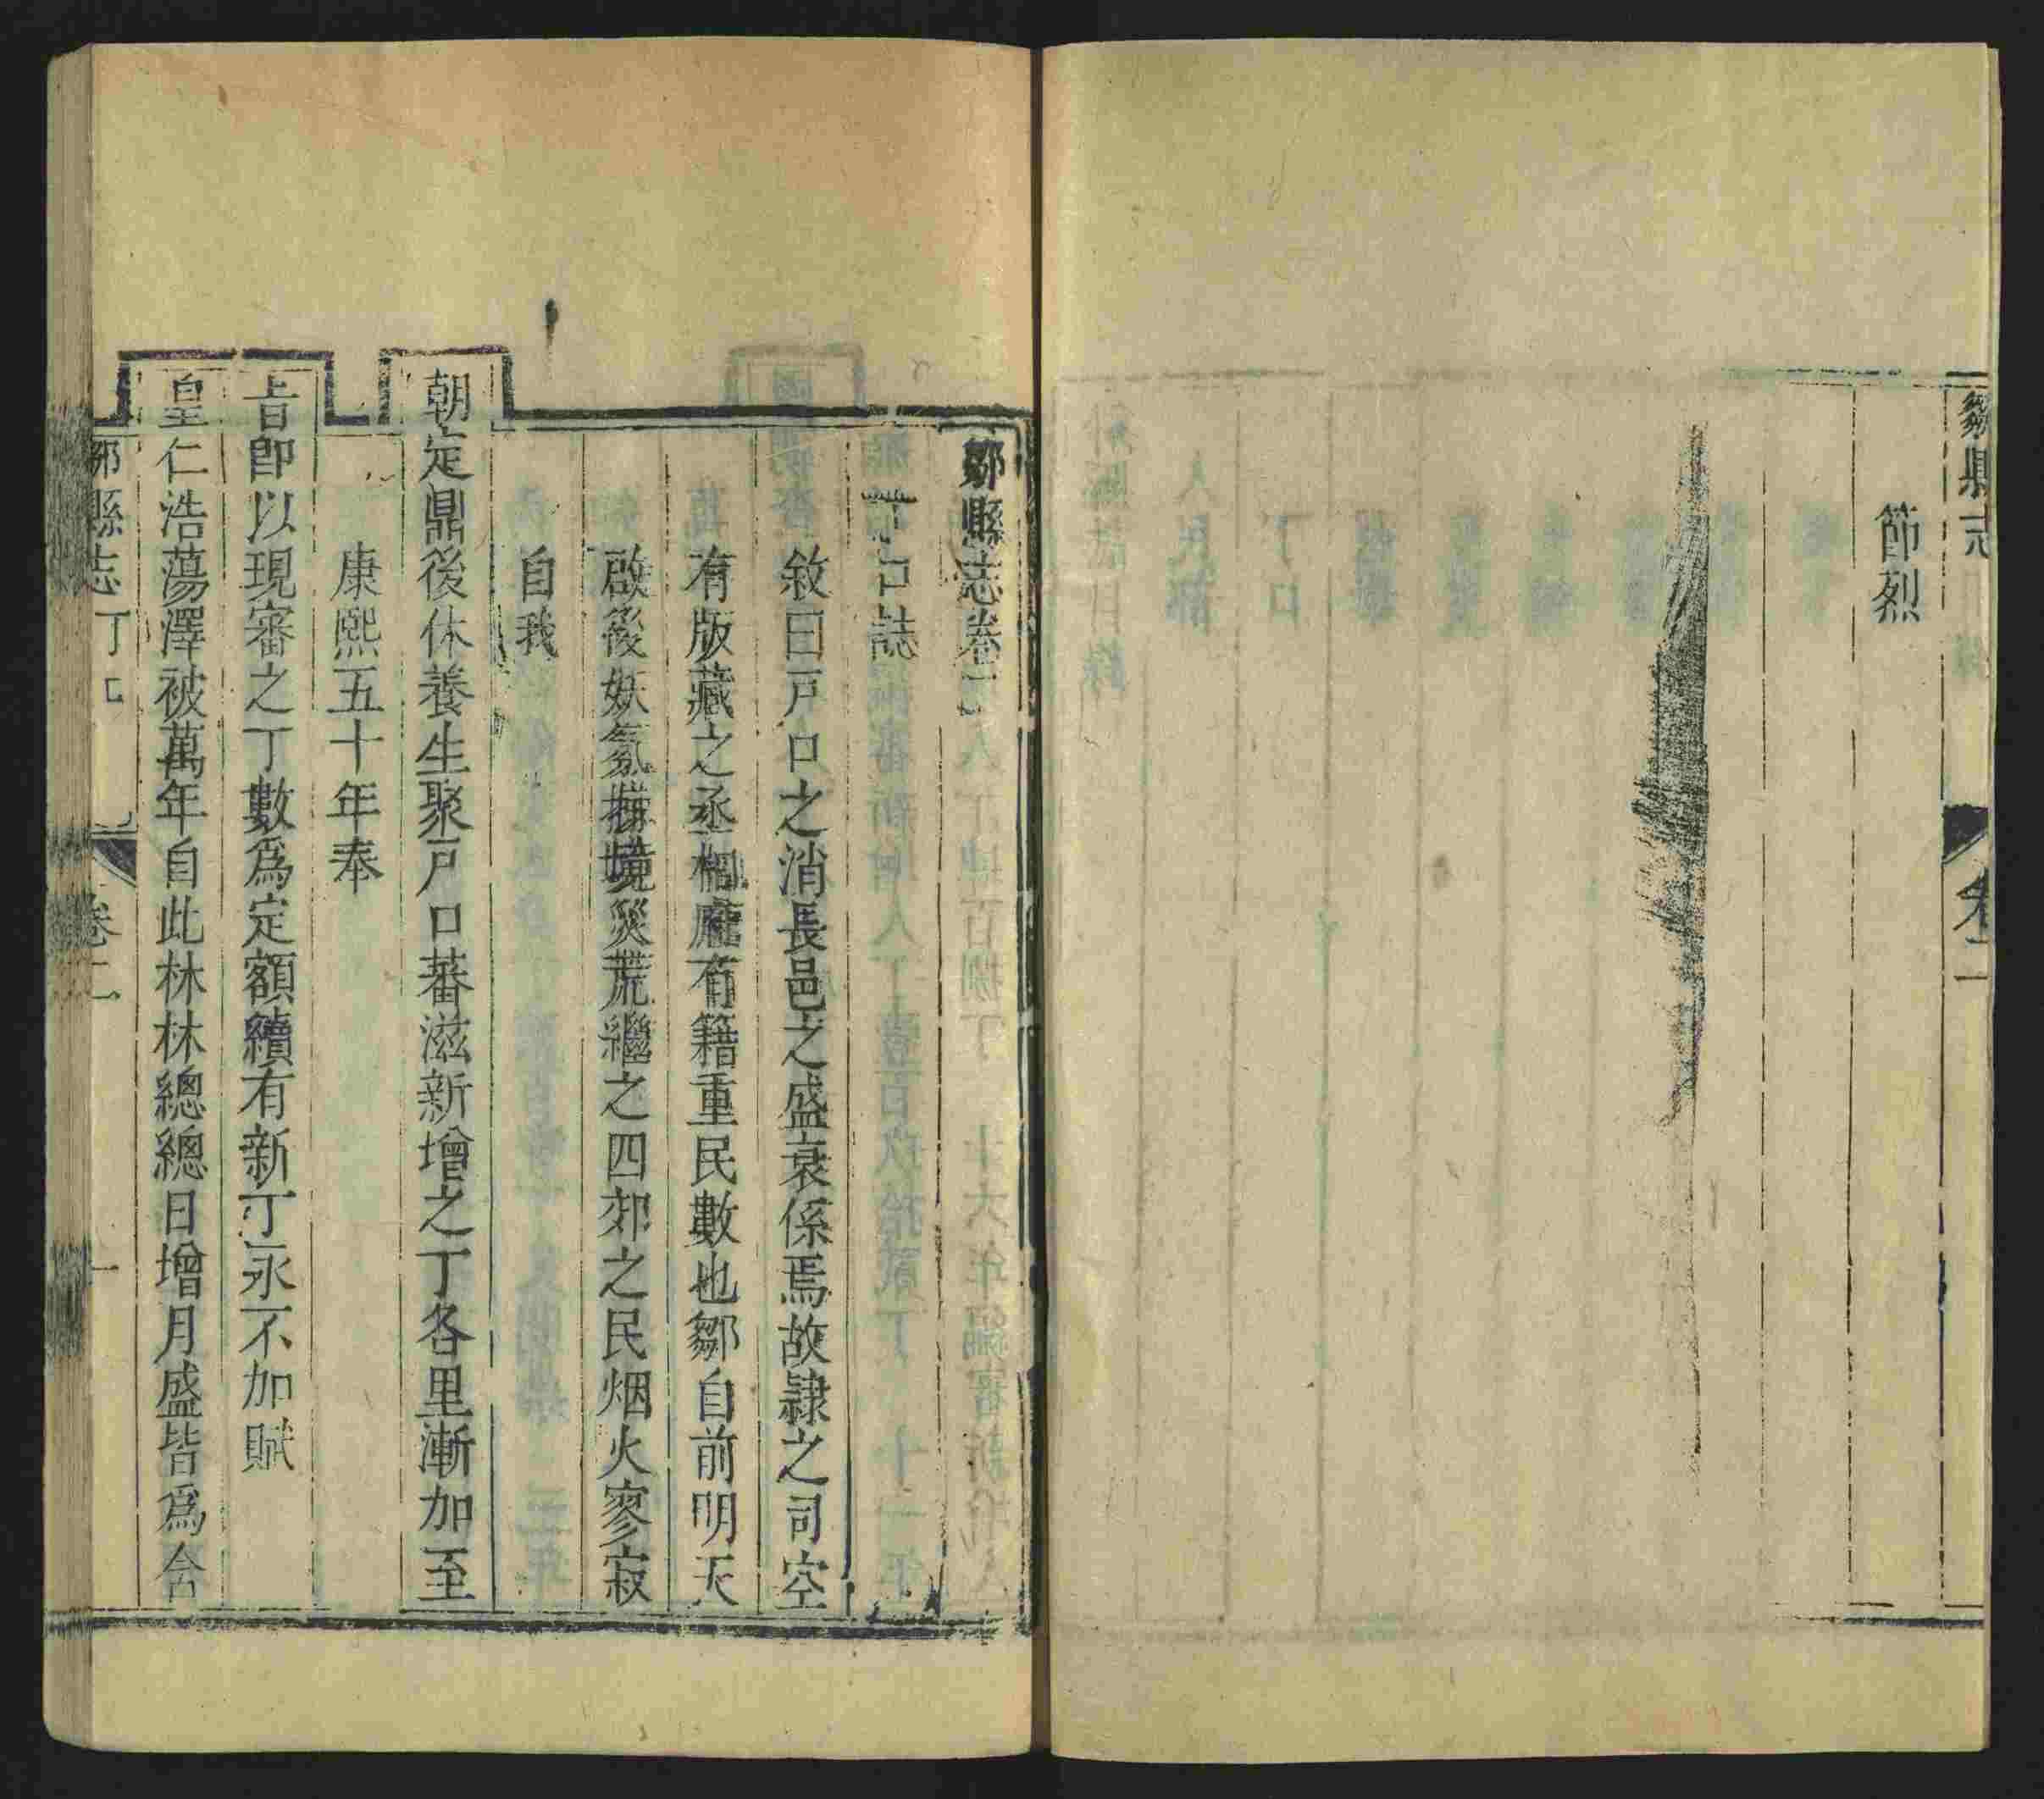 鄒縣志
卷二
節烈
鄒縣志卷二
丁口誌
敘曰戸口之消長邑之盛衰係焉故隷之司空
有版藏之丞相廳有籍重民數也鄒自前明天
啟後妖氛搆境災荒繼之四郊之民烟火寥寂
自我
朝定鼎後休養生聚戸口蕃滋新增之丁各里漸加至
康熙五十年奉
旨卽以現審之丁數爲定額續有新丁永不加賦
皇仁浩蕩澤被萬年自此林林總總日增月盛皆爲含
鄒縣志
卷二
一